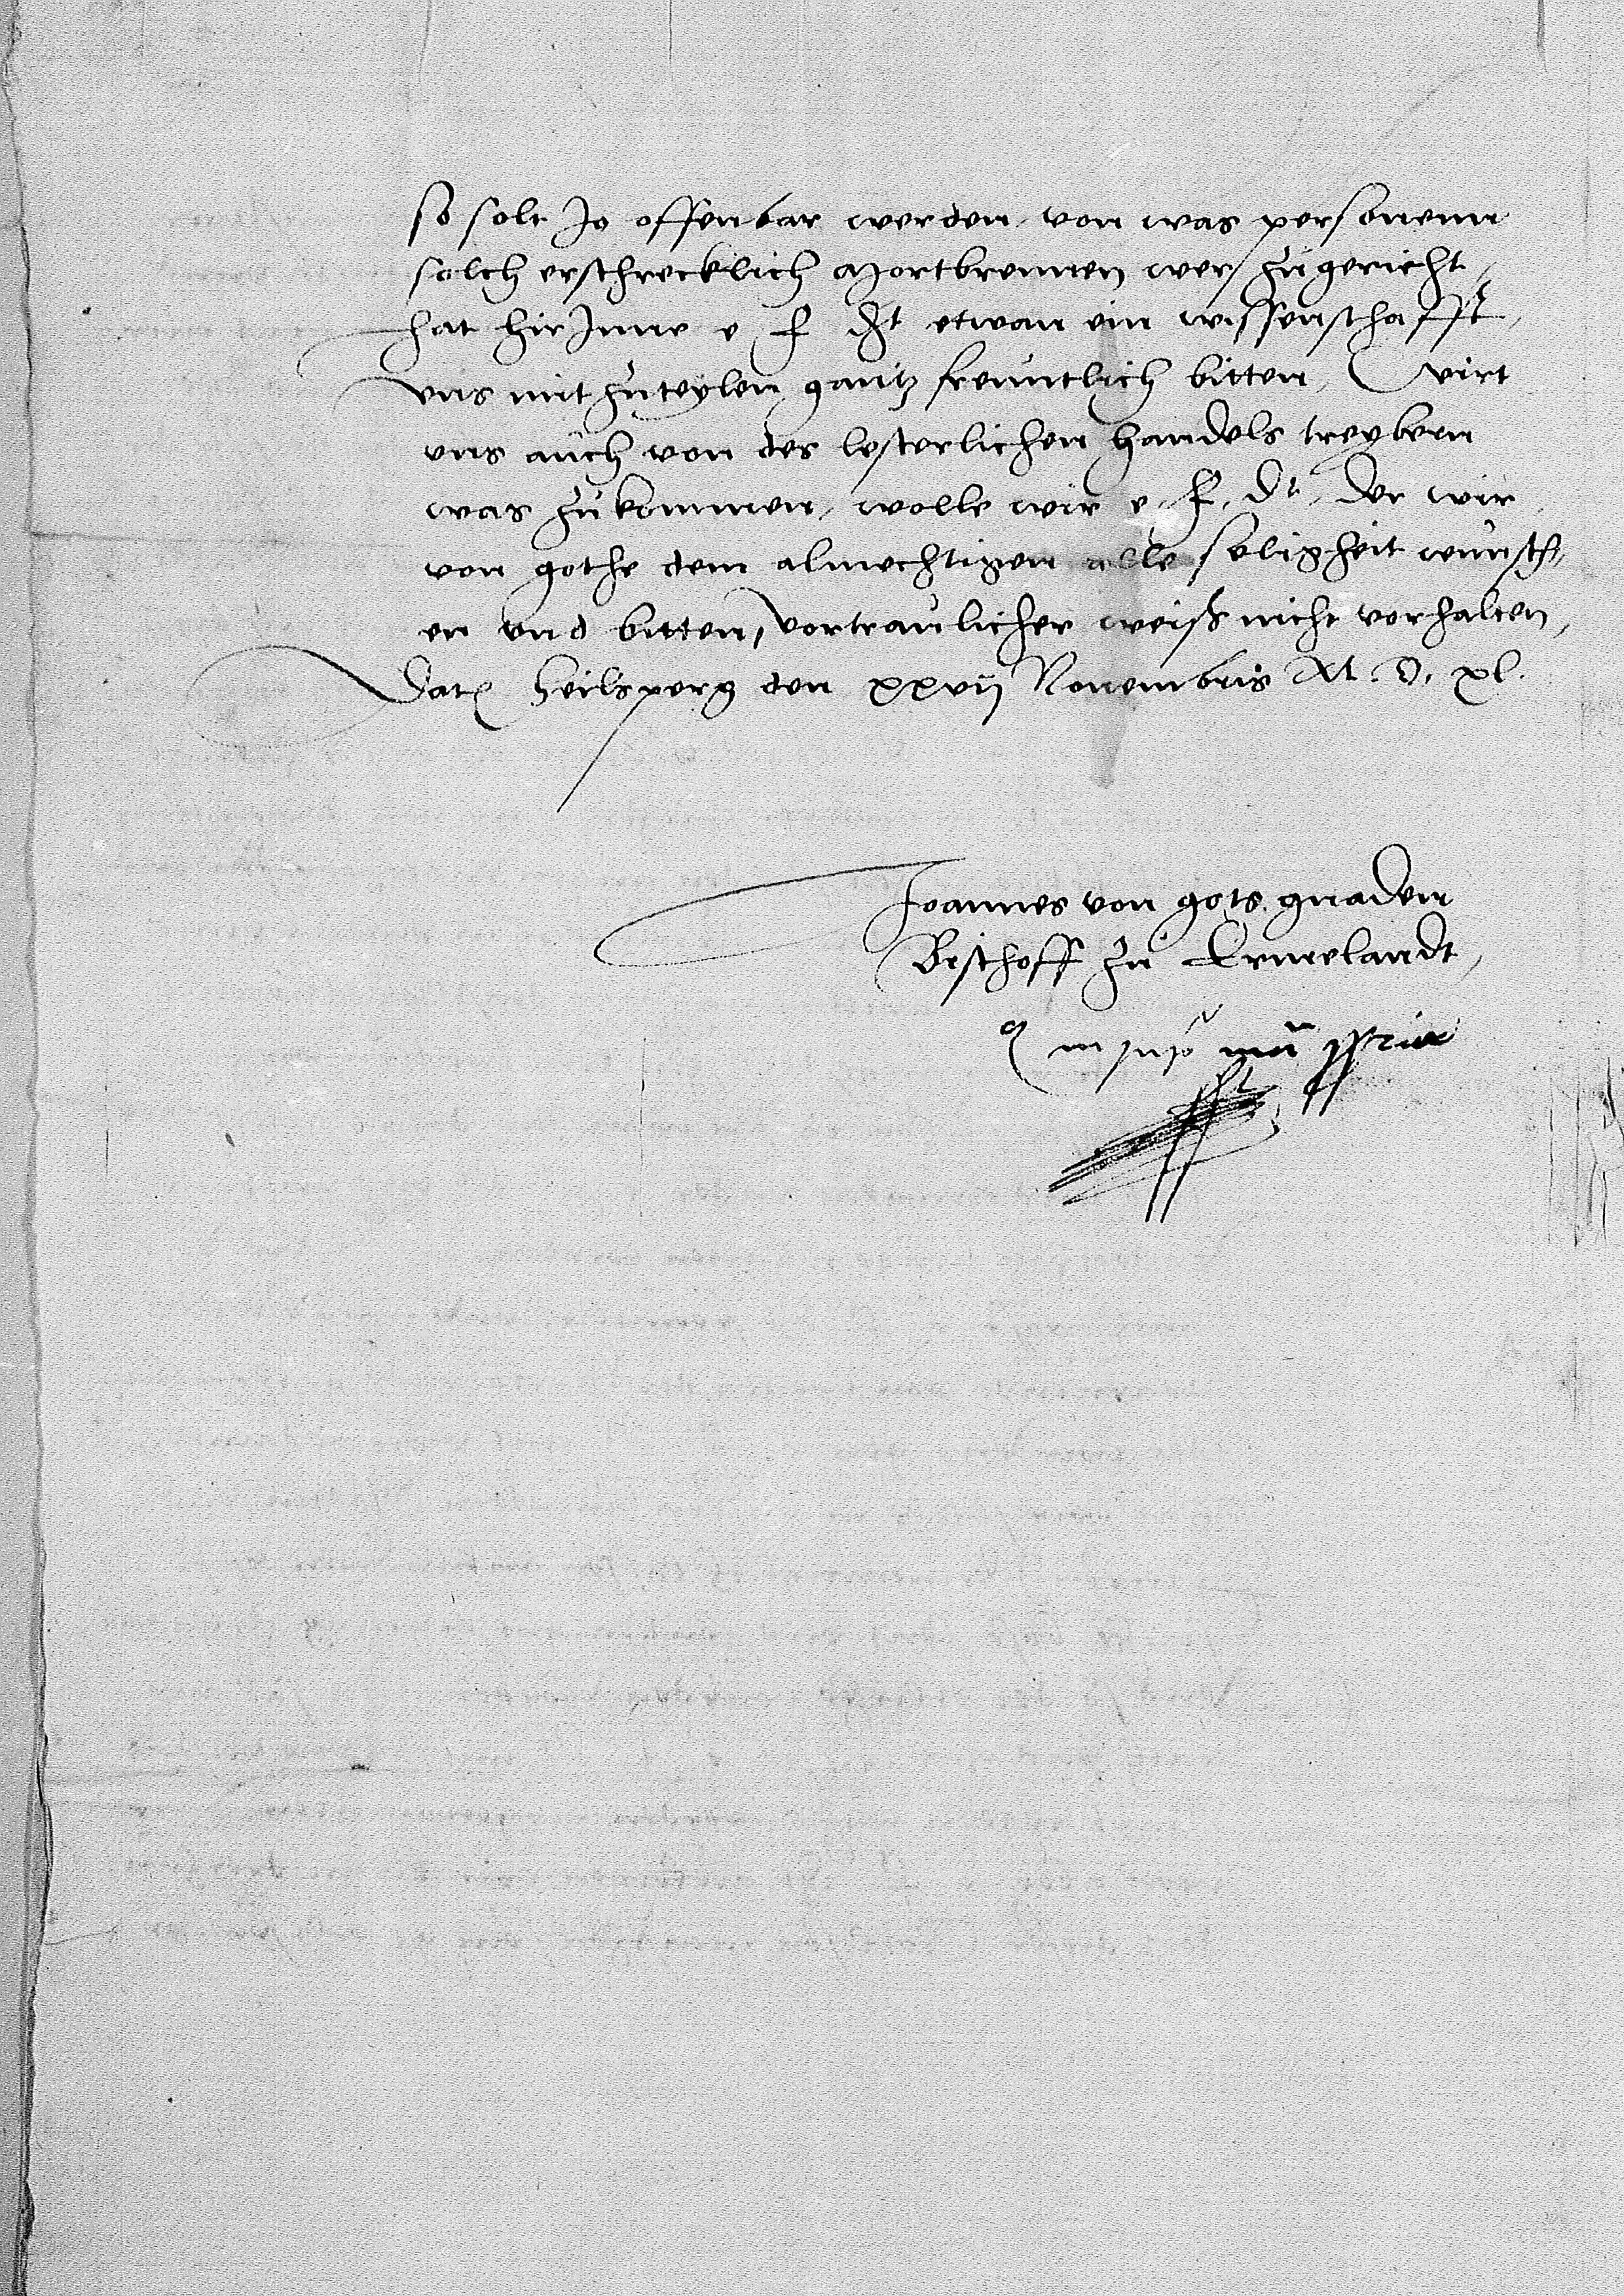 so solt Jo offenbar werden, von was personenn
solch erschrecklich mortbrennen wer zugericht,
hat hir Jnne e f dt etwan ein wissenschafft,
vns mit zuteylen gantz freuntlich bitten, Wirt
vns auch von des lesterlichen handels treybern
was zukommen, wolle wir e. f. dt, der wir
von gothe dem almechtigen alle seligheit wunsch,
en vnd bitten, vortraulicher weiß nicht vorhalten,
Dat Heilsperg den xxvij Novembris M. D. xl.
Joannes von gots gnaden
Bischoff zu Ermelandt,